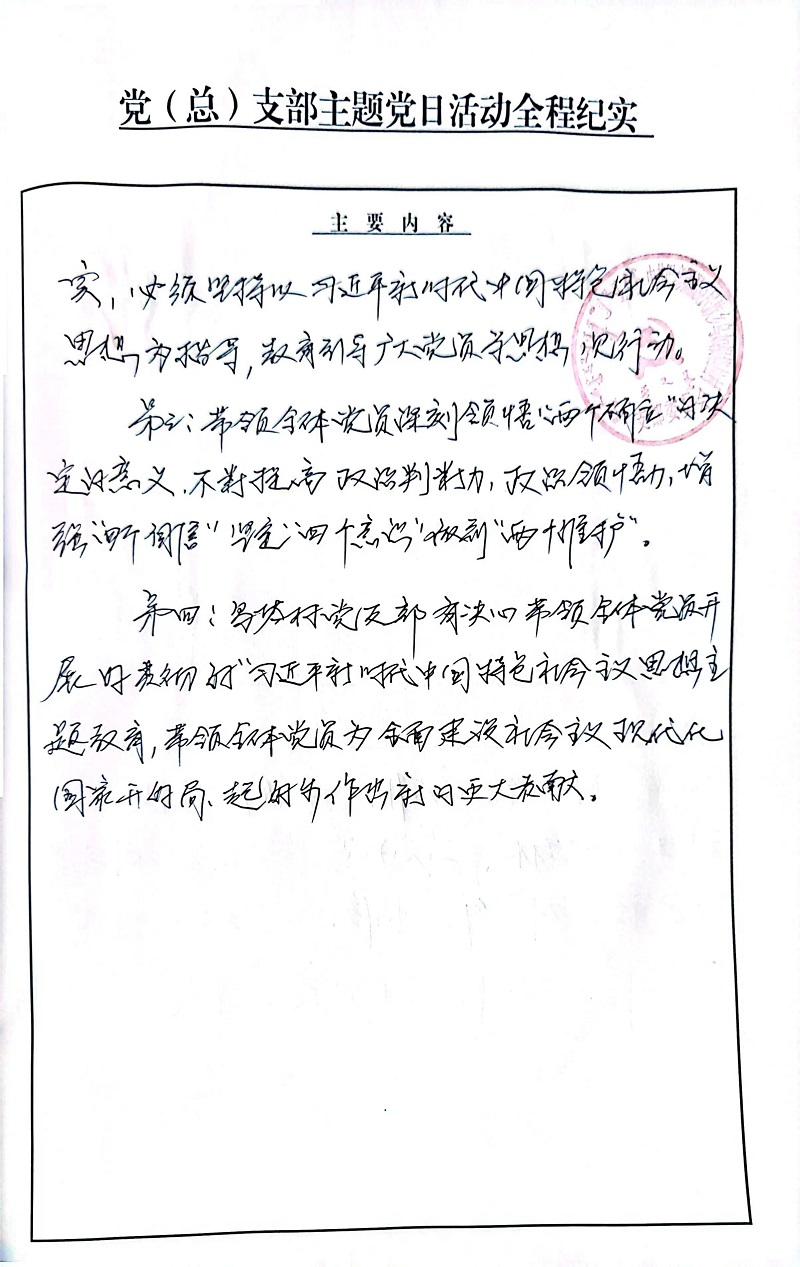 党（总）支部主题党日活动全程纪实
主要内容
实，必须坚持以习近平新时代中国特色社会主义
思想为指导，教育引导广大党员学思想、见行动。
第三：带领全体党员深刻领悟“两个确立”的决
定性意义，不断提高政治判断力，政治领悟力，增
强“四个自信”坚定“四个意识”做到“两个维护”。
第四：党支部有决心带领全体党员开
展好贯彻的“习近平新时代中国特色社会主义思想主
题教育，带领全体党员为全面建设社会主义现代化
国家开好局、起好步作出新的更大贡献。